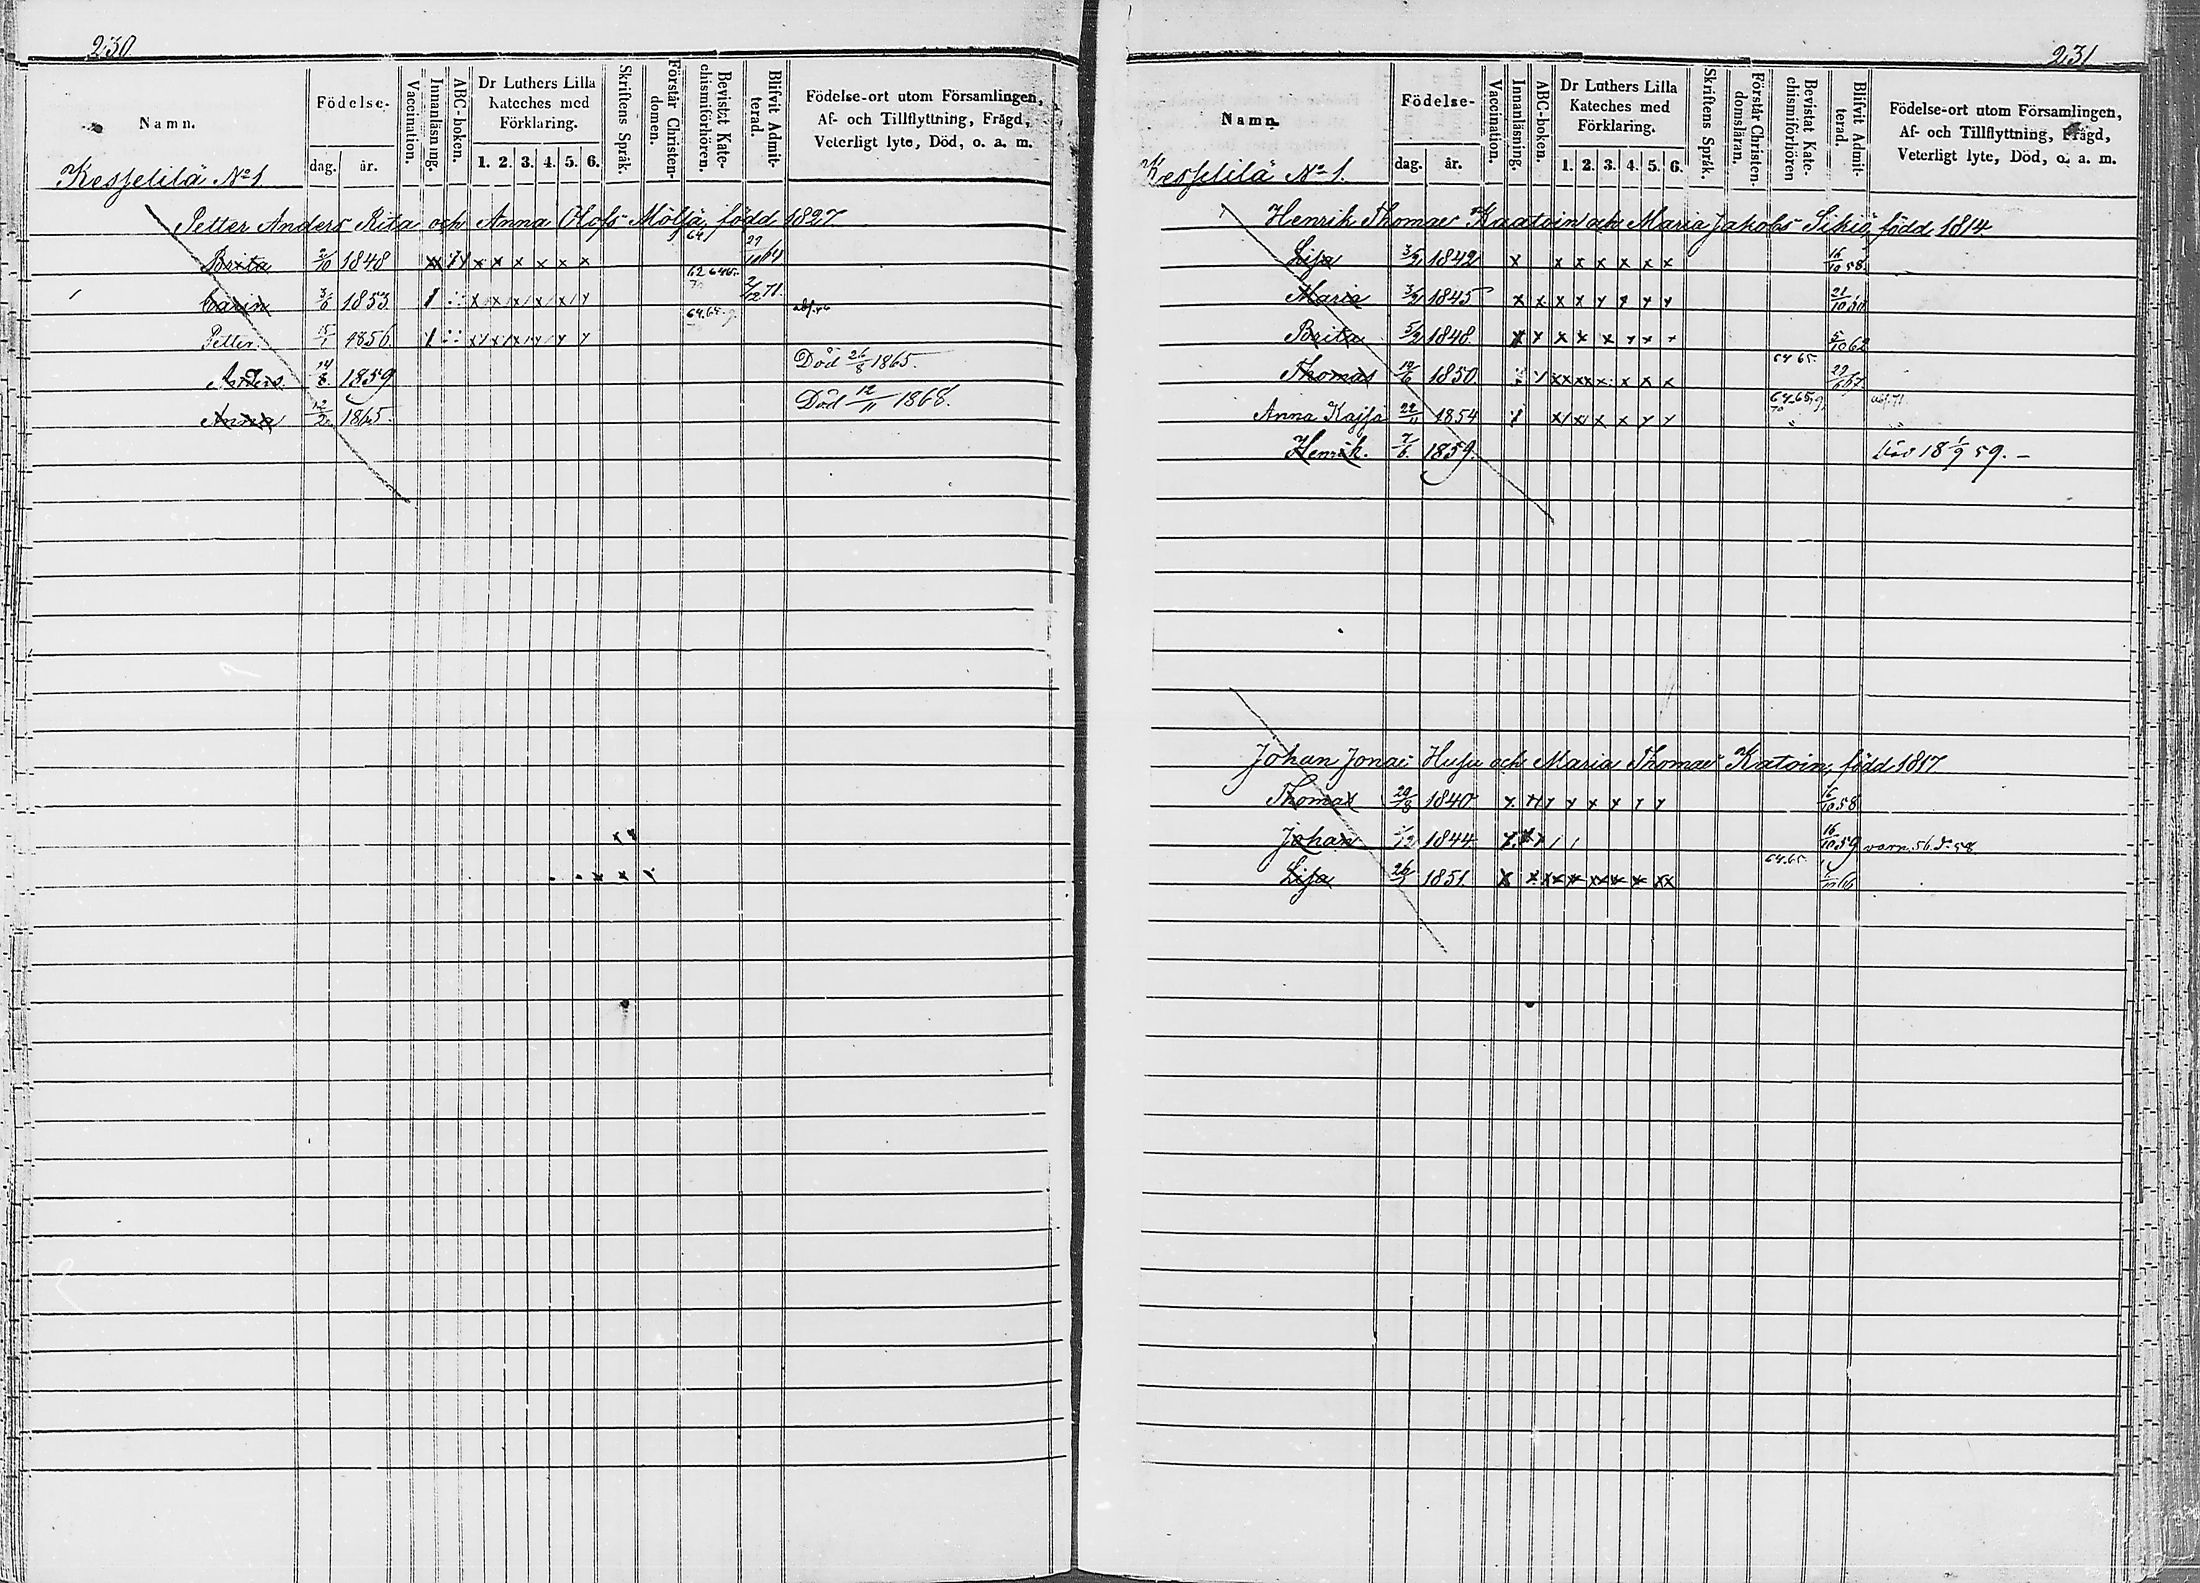 230
Namn.
Födelse-
dag. år.
Vaccination.
Innanläsning.
ABC-boken.
Dr Luthers Lilla
Kateches med
Förklaring.
1. 2. 3. 4. 5. 6.
Skriftens Språk.
Förstår Christen-
domen.
Bevistat Kate-
chismiförhören.
Blifvit Admit-
terad.
Födelse-ort utom Församlingen,
Af- och Tillflyttning, Frägd,
Veterligt lyte, Död, o. a. m.
Kesselilä No 1
Petter Anders Rita och Anna Olofs Möljä, född 1827.
Brita 2/10 1848 x x x x x x 64 29/10 64
Carin 3/6 1853 2/12 71.
Petter 15/1 1856 64.65.
Anders 14/8 1859 Död 26/8 1865.
Anna 12/2 1865. Död 12/11 1868.
231
Namn
Födelse-
dag. år.
Vaccination.
Innanläsning.
ABC-boken.
Dr Luthers Lilla
Kateches med
Förklaring.
1. 2. 3. 4. 5. 6.
Skriftens Språk.
Förstår Christen-
domsläran.
Bevistat Kate-
chismiförhören
Blifvit Admit-
terad.
Födelse-ort utom Församlingen,
Af- och Tillflyttning, Frägd,
Veterligt lyte, Död, o. a. m.
Kesselilä No 1.
Henrik Thomas Kaatoin och Maria Jakobs Sikiö, född 1814
Lisa 3/2 1842 x x x x x x x 16/10 58.
Maria 3/2 1845 21/10 60
Brita 5/2 1848. 5/10 62
Thomas 19/6 1850. 64 65.
Anna Kajsa 22/11 1854 64.65
Henrik. 7/6 1859. 18 1/9 59. –
Johan Jonas Husu och Maria Thomas Katoin, född 1817.
Thomas 20/8 1840 16/10 58
Johan 1844 16/10 59
Lisa 1851. 64.65.